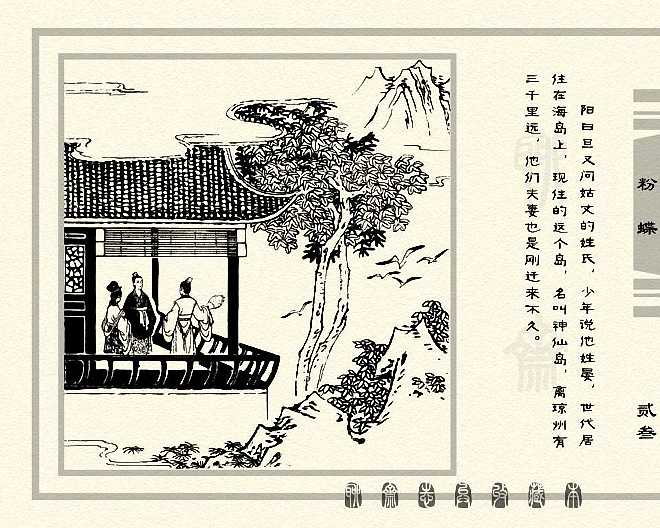 粉蝶
贰叁
阳曰旦又问姑丈的姓氏，少年说他姓晏，世代居
住在海岛上，现住的这个岛，名叫神仙岛，离琼州有
三千里远，他们夫妻也是刚迁来不久。
聊斋志异收藏本